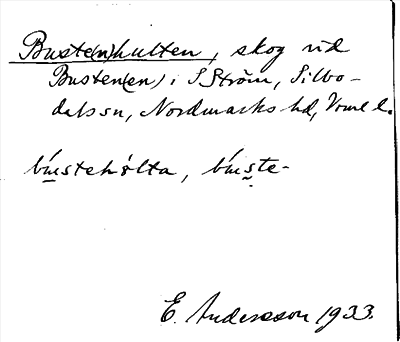 Buste(n)hulten, skog vid
Busten(en) i S Ström, Silbo-
dals sn, Nordmarks hd, Vrml l.
bústehòlta, bús̭te-
E. Andersson 1933.